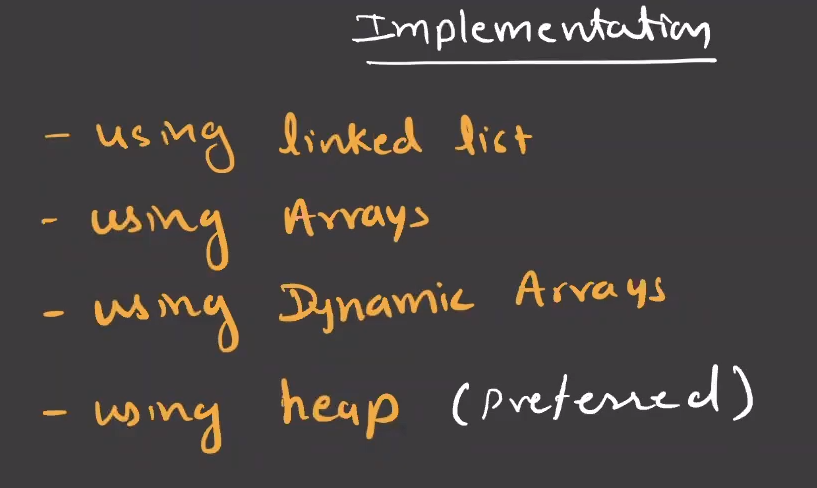 Implementation
- using linked list
- using Arrays
- using Dynamic Arrays
- using heap (preferred)